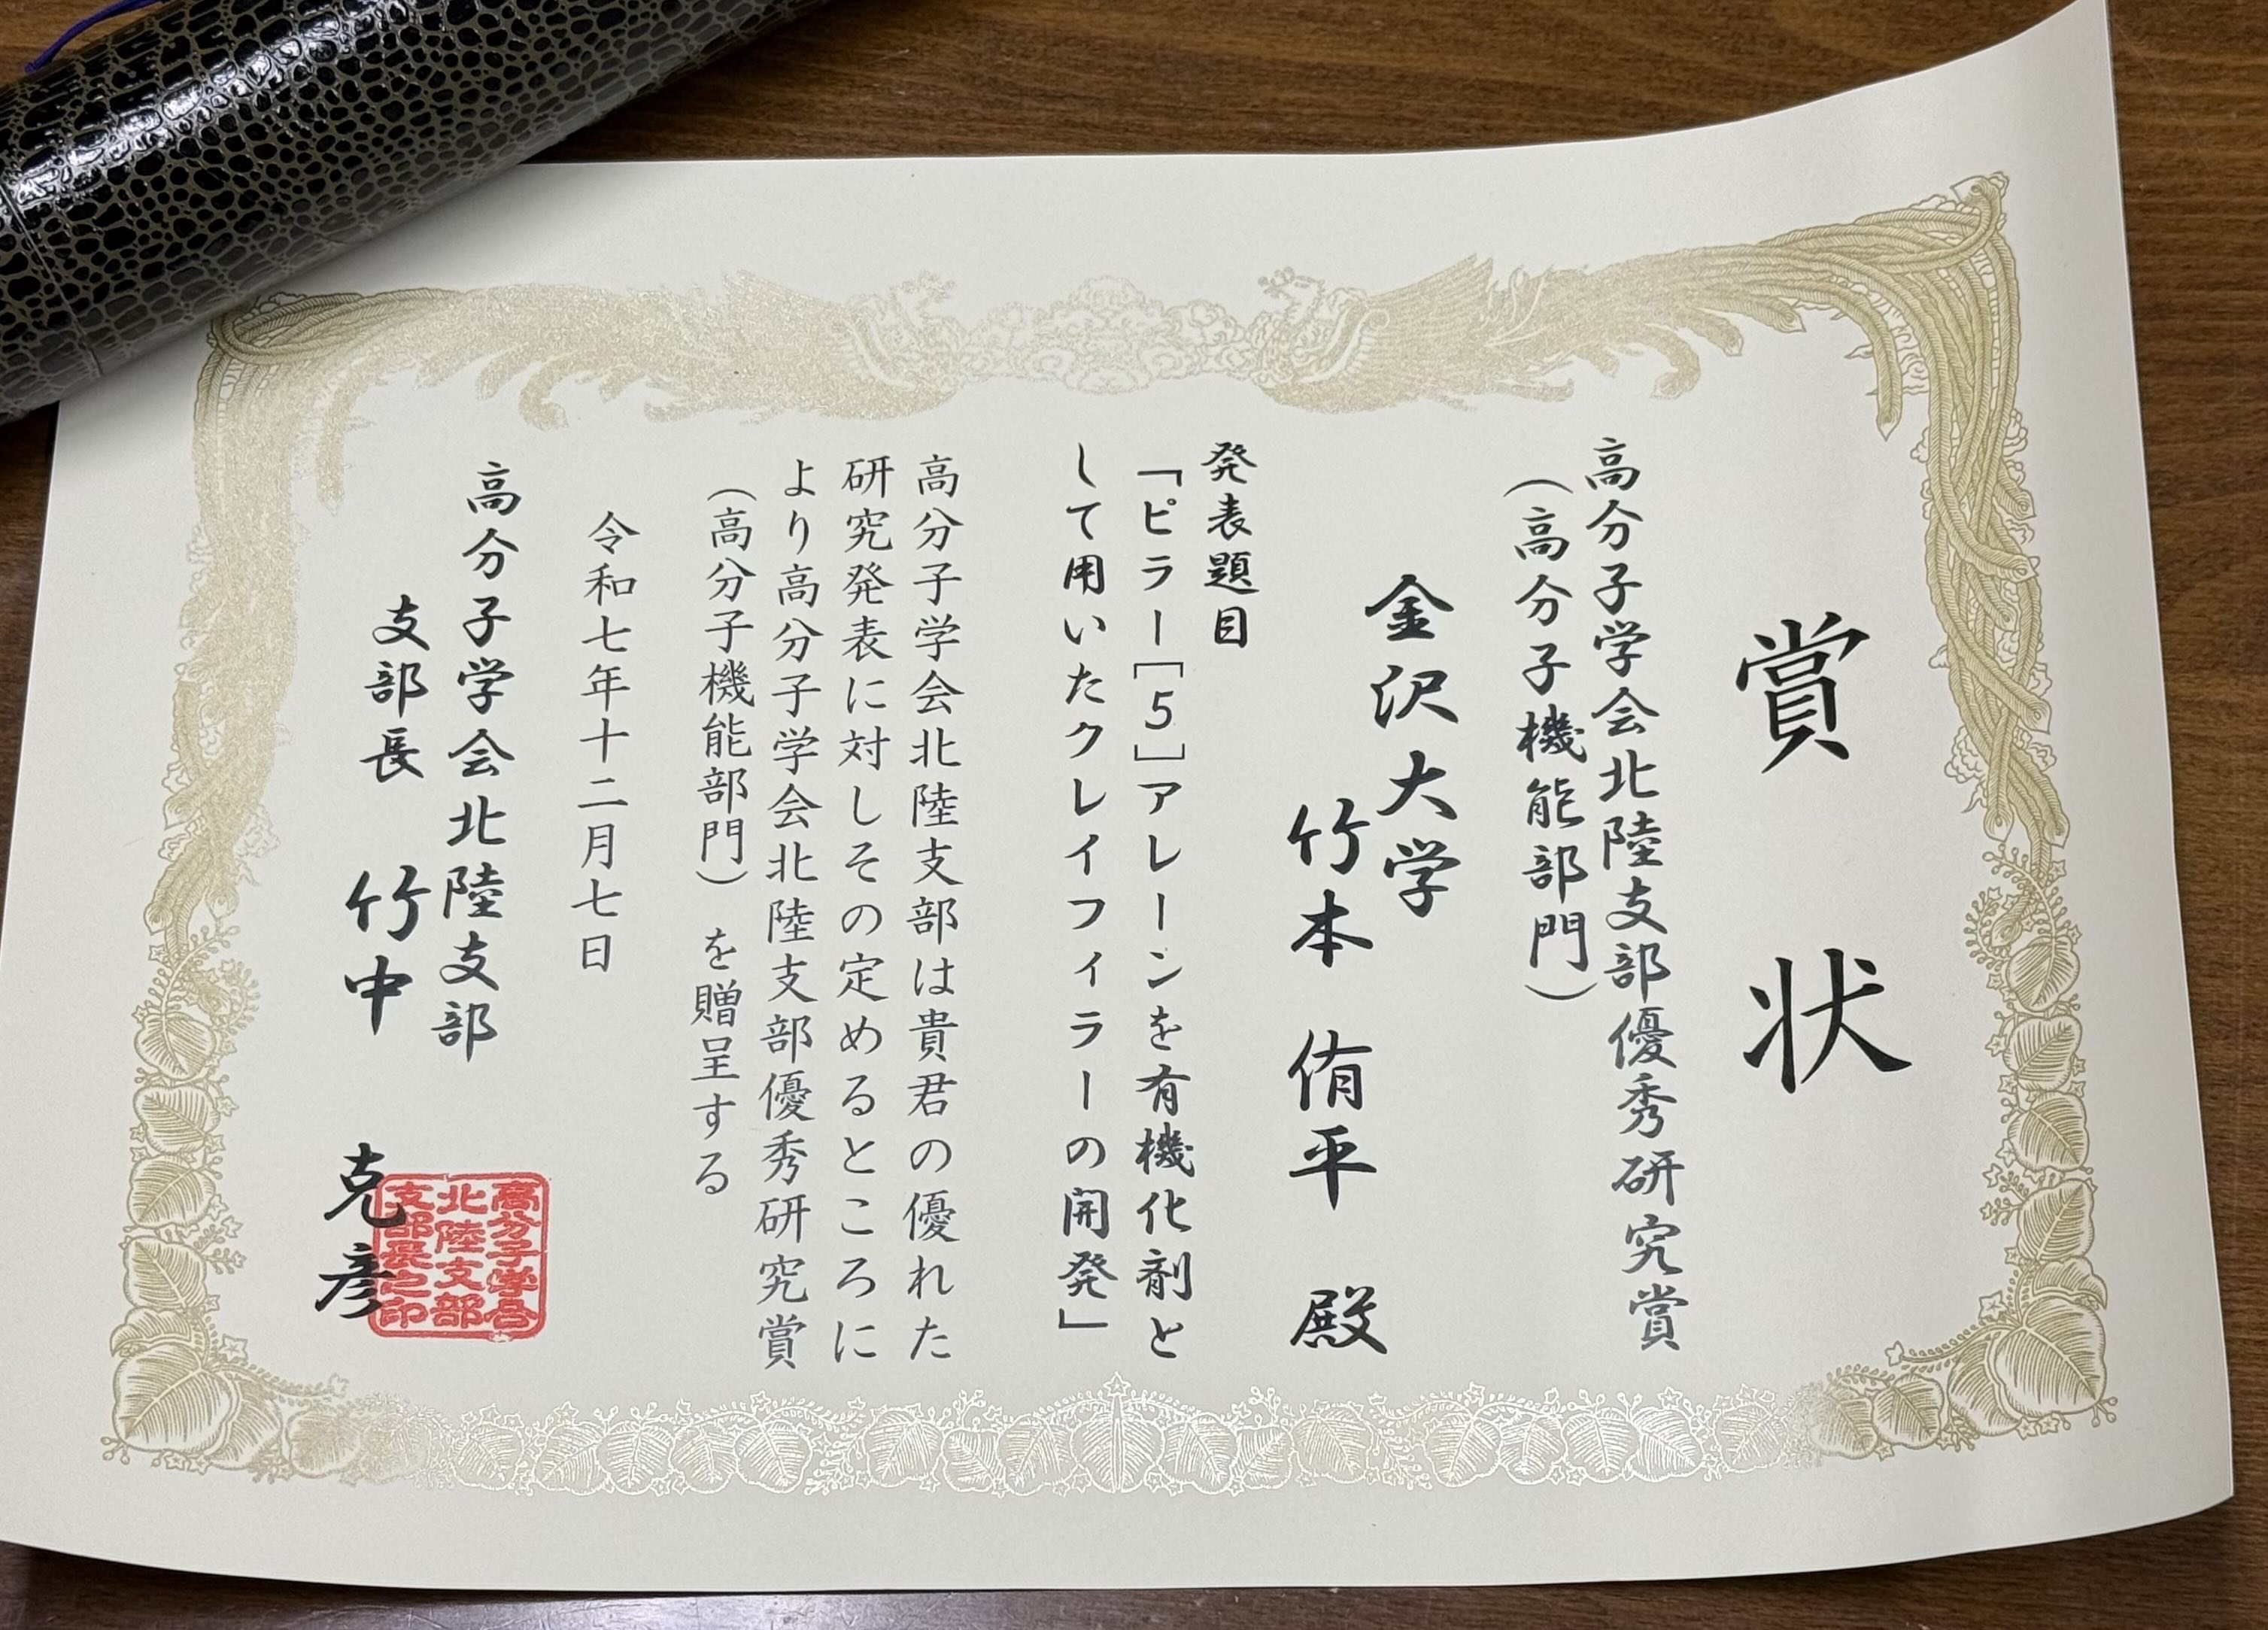 賞状
高分子学会北陸支部優秀研究賞
(高分子機能部門)
金沢大学
竹本 侑平 殿
発表題目
「ピラー[5]アレーンを有機化剤と
して用いたクレイフィラーの開発」
高分子学会北陸支部は貴君の優れた
研究発表に対しその定めるところに
より高分子学会北陸支部優秀研究賞
(高分子機能部門)を贈呈する
令和七年十二月七日
高分子学会北陸支部
支部長 竹中 克彦
高分子学会
北陸支部
支部長之印